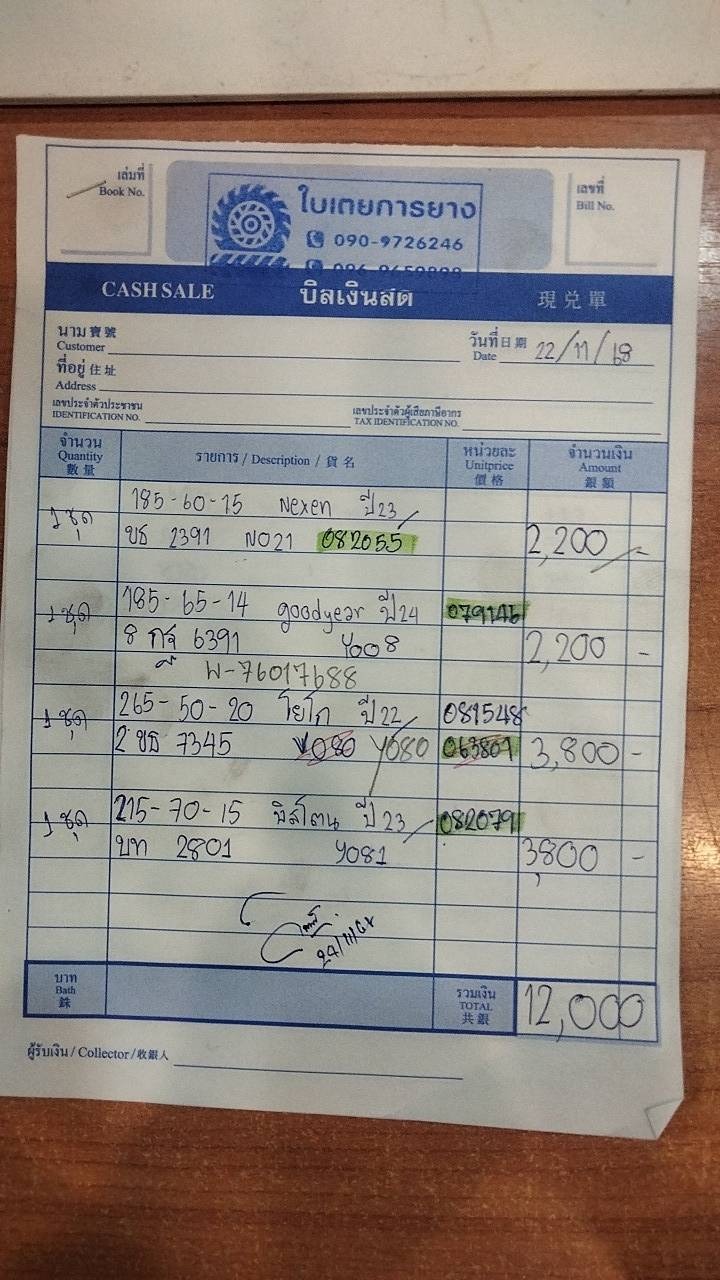 เล่มที่
Book No.
ใบเตยการยาง
090-9726246
เลขที่
Bill No.
CASH SALE บิลเงินสด 現兌單
นาม 寶號
Customer
วันที่ 日期
Date 22/11/68
ที่อยู่ 住址
Address
เลขประจำตัวประชาชน
IDENTIFICATION NO.
เลขประจำตัวผู้เสียภาษีอากร
TAX IDENTIFICATION NO.
จำนวน
Quantity
數量
รายการ / Description / 貨名
หน่วยละ
Unitprice
價格
จำนวนเงิน
Amount
銀額
1 ชุด 185-60-15 Nexen ปี23
ขธ 2391 NO21 082055 2,200 -
1 ชุด 185-65-14 goodyear ปี24 079146
8 กจ 6391 Y008 2,200 -
W-76017688
1 ชุด 265-50-20 โยโก ปี22 081548
2 ขธ 7345 Y080 Y080 063809 3,800 -
1 ชุด 215-70-15 บิสโตน ปี23 082079
บท 2801 Y081 3,800 -
24/11/68
บาท
Bath
銖
รวมเงิน
TOTAL
共銀
12,000
ผู้รับเงิน / Collector / 收銀人